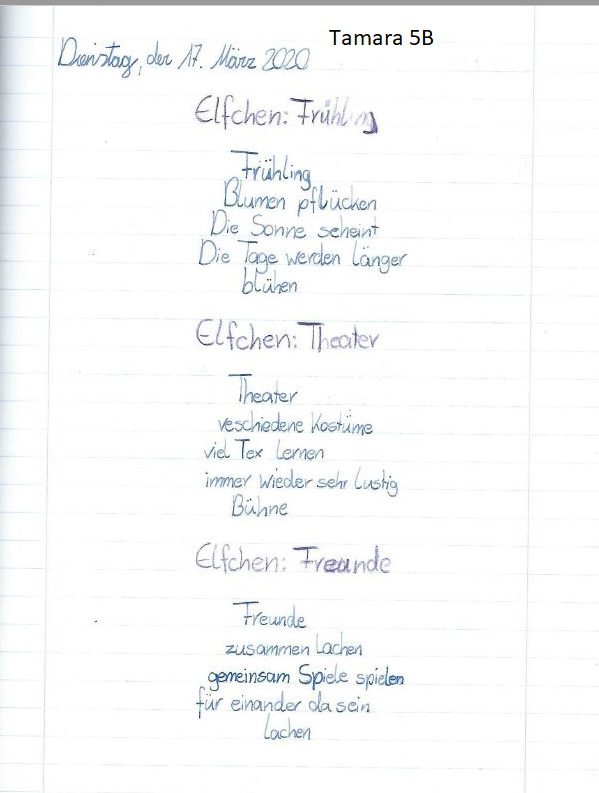 Tamara 5B
Dienstag, der 17. März 2020
Elfchen: Frühling
Frühling
Blumen pflücken
Die Sonne scheint
Die Tage werden länger
blühen
Elfchen: Theater
Theater
veschiedene Kostüme
viel Tex lernen
immer wieder sehr lustig
Bühne
Elfchen: Freunde
Freunde
zusammen lachen
gemeinsam Spiele spielen
für einander da sein
lachen